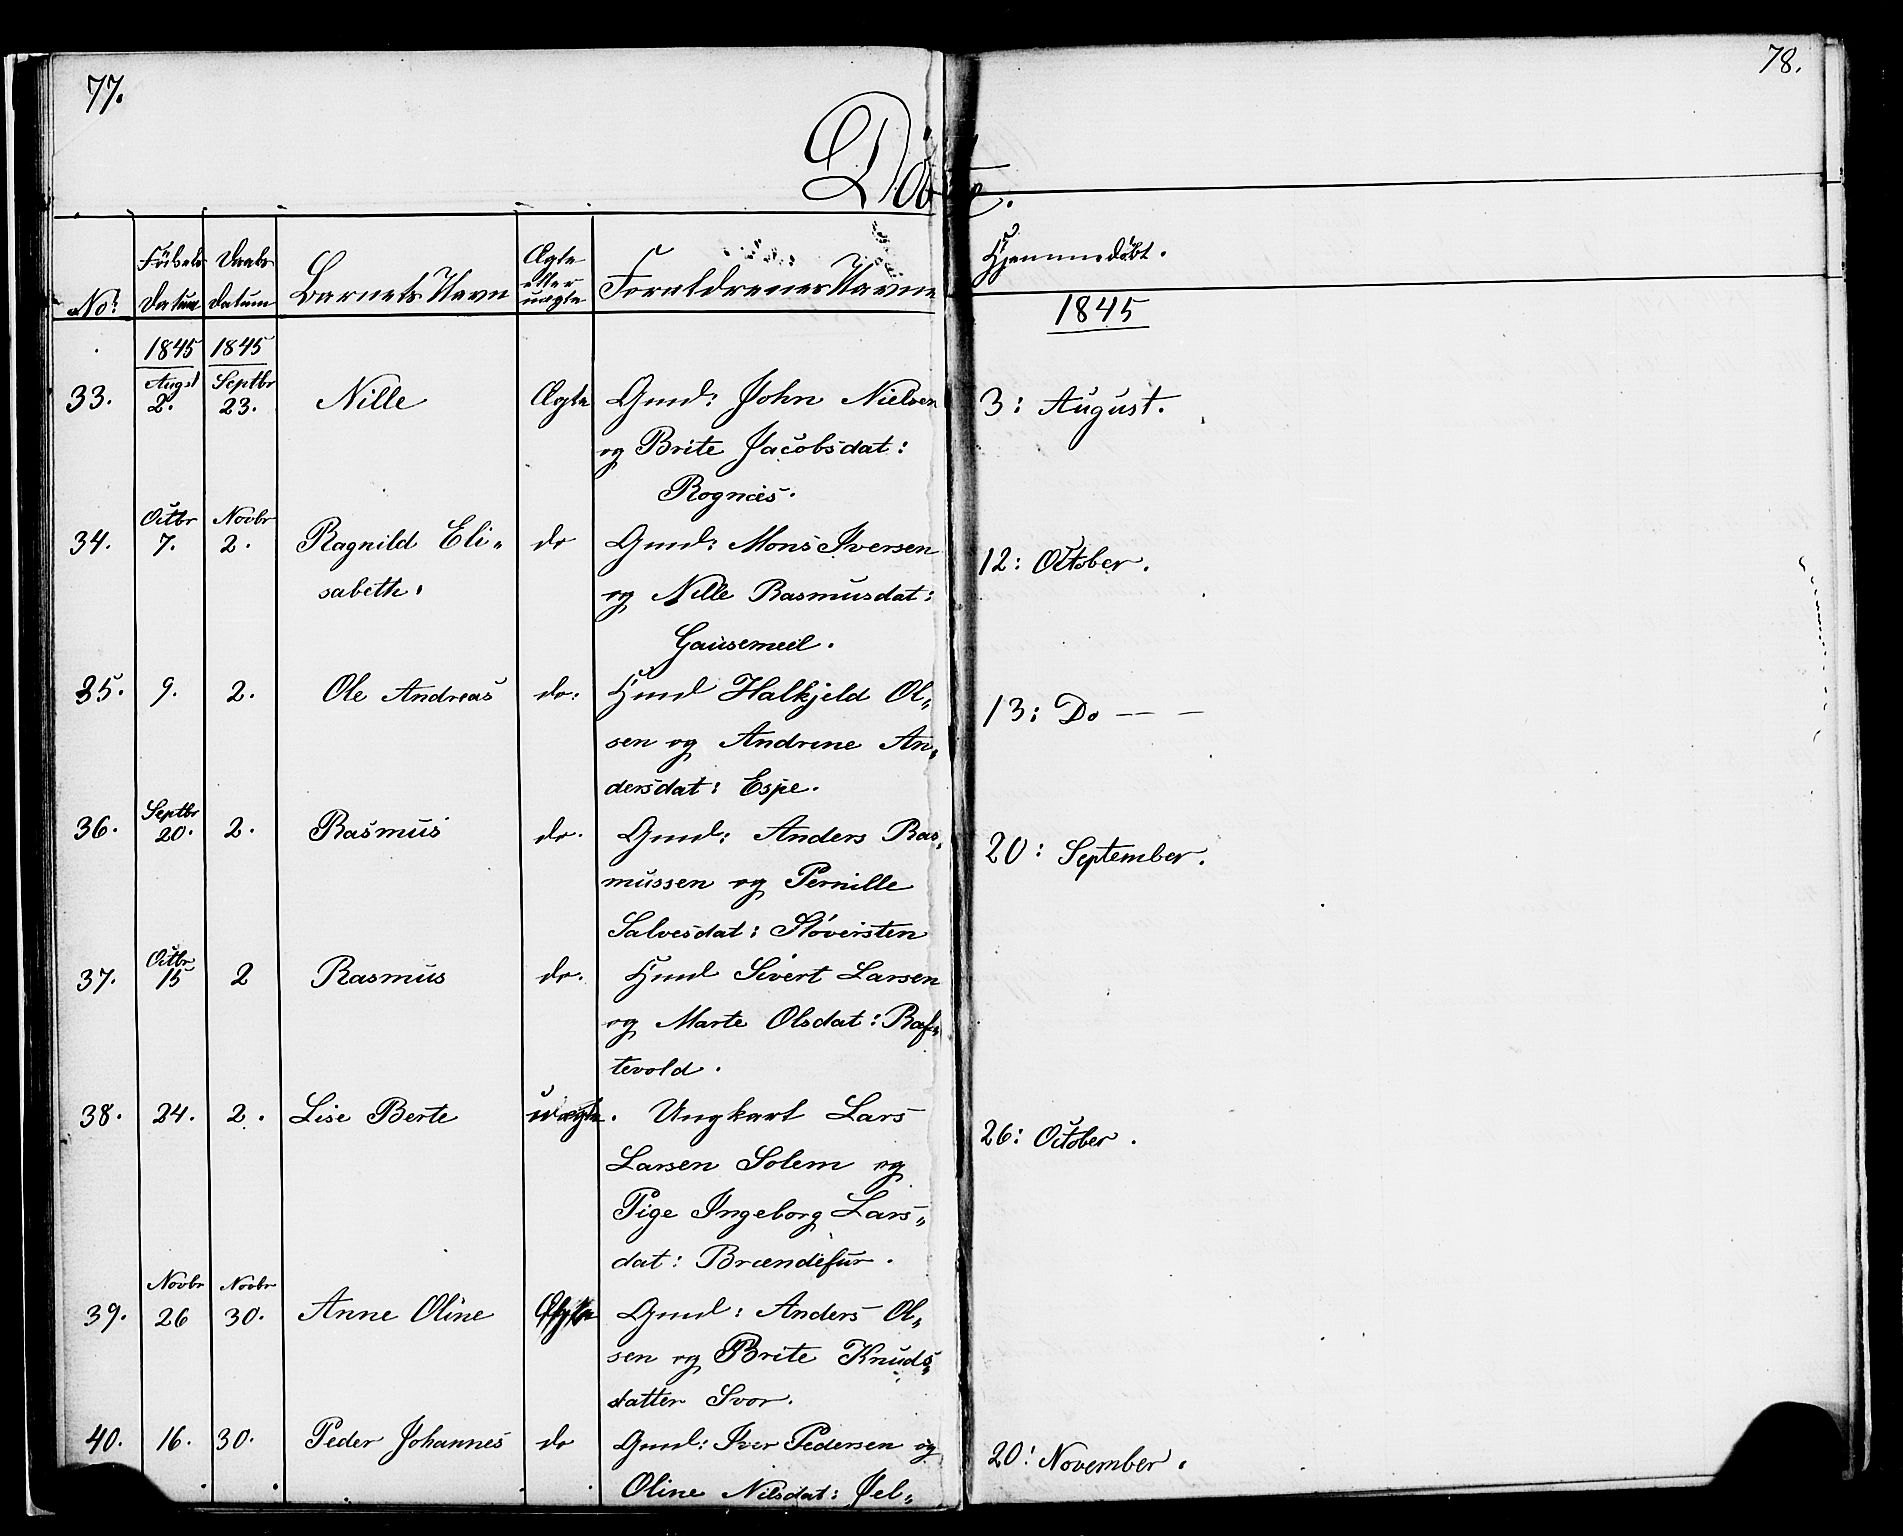 77.
78.
Döbte.
No:
Födsels Datum
Daabs Datum
Barnets Navn
Ægte eller uægte
Forældrenes Navne
Hjemmedöbt.
1845 1845 1845
33. Augst 2. Septbr 23. Nille Ægte Gmd: John Nielsen 3: August.
og Brite Jacobsdat:
Rognæs.
34. Octbr 7. Novbr 2. Ragnild Eli- do Gmd: Mons Iversen 12: October.
sabeth. og Nille Rasmusdat:
Gausemeel.
35. 9. 2. Ole Andreas do: Hmd Halkjeld Ol- 13: Do — —
sen og Andrine An-
dersdat: Espe.
36. Septbr 20. 2. Rasmus do. Gmd: Anders Ras- 20: September.
mussen og Pernille
Salvesdat: Støversten
37. Octbr 15 2 Rasmus do. Hmd Sivert Larsen
og Marte Olsdat: Raf-
tevold.
38. 24. 2. Lise Berte uægte. Ungkarl Lars 26: October.
Larsen Solem og
Pige Ingeborg Lars-
dat: Brændefur.
39. Novbr 26 Novbr 30. Anne Oline Ægte Gmd: Anders Ol-
sen og Brite Knuds-
datter Svor.
40. 16. 30. Peder Johannes do Gmd: Iver Pedersen og 20: November.
Oline Nilsdat: Jel-